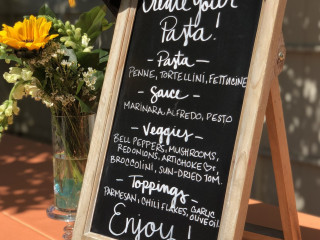 Create your
Pasta!
- Pasta -
PENNE, TORTELLINI, FETTUCINE
- Sauce -
MARINARA, ALFREDO, PESTO
- Veggies -
BELL PEPPERS, MUSHROOMS,
RED ONIONS, ARTICHOKE ♡,
BROCCOLINI, SUN-DRIED TOM.
- Toppings -
PARMESAN, CHILI FLAKES, GARLIC
OLIVE OIL
Enjoy!